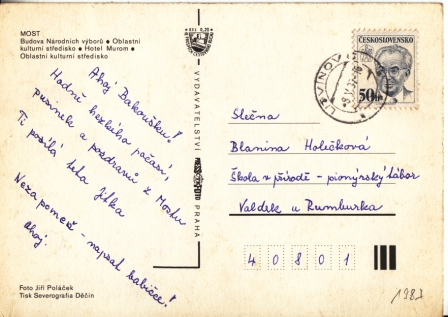 MOST
Budova Národních výborů • Oblastní
kulturní středisko • Hotel Murom •
Oblastní kulturní středisko
Ahoj Bakoušku!
Hodně hezkého počasí,
pusinek a pozdravů z Mostu
Ti posílá teta Jitka
Nezapomeň - napsat babičce!
Ahoj.
Foto Jiří Poláček
Tisk Severografia Děčín
VYDAVATELSTVÍ
PRAHA
LITVÍNOV
ČESKOSLOVENSKO
50h
Slečna
Blanina Holečková
Škola v přírodě - pionýrský tábor
Valdek u Rumburka
40801
1987